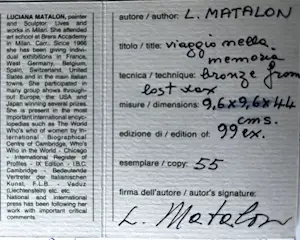 LUCIANA MATALON, painter
and Sculptor: Lives and
works in Milan. She attended
art school at Brera Academy
in Milan. Carr. Since 1966
she has been giving individual
exhibitions in France,
West Germany, Belgium,
Spain, Switzerland, United
States and in the main italian
towns. She participated in
many group shows throughout
Europe, the USA and
Japan winning several prizes.
She is present in the most
important encyclopedias
such as The World
Who's who of women by International
Biographical
Centre of Cambridge, Who's
Who in the World - Chicago
- International Register of
Profiles - IX Edition - I.B.C.
Cambridge - Bedeutende
Vertreter der Italienischen
Kunst, F.L.B. - Vaduz
(Liechenstein) etc. etc.
National and international
press has been following her
work with important critical
comments.
autore / author: L. MATALON
titolo / title: viaggio nella
memoria
tecnica / technique: bronze from
lost wax
misure / dimensions: 9,6x9,6x44
cms.
edizione di / edition of: 99 ex.
esemplare / copy: 55
firma dell'autore / autor's signature:
L. Matalon